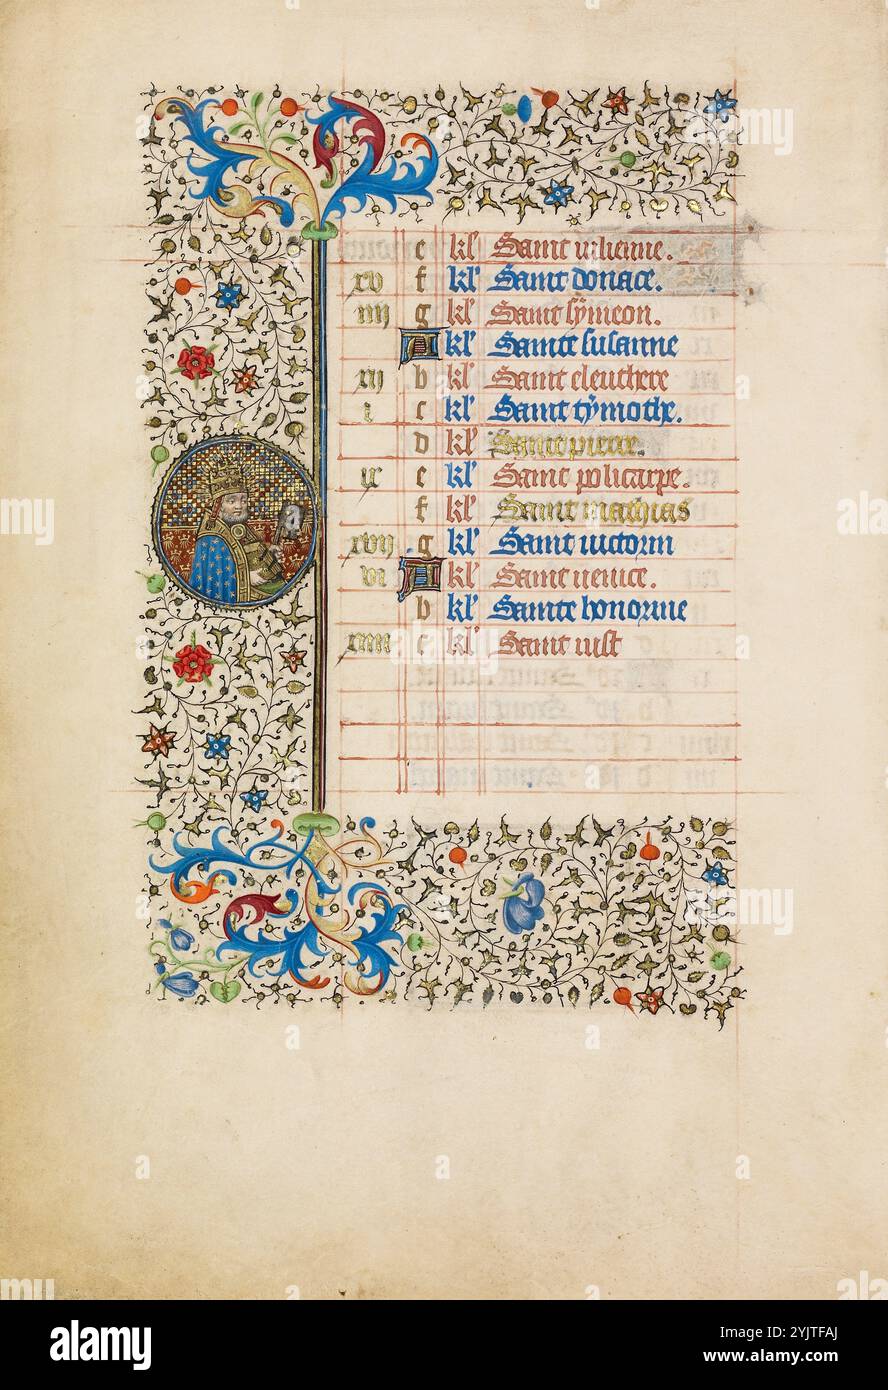 e kl' Saint iulienne.
xv f kl' Saint donace.
iiii g kl' Saint sÿmeon.
A kl' Sainte susanne
xii b kl' Saint eleuthere
i c kl' Saint tÿmothe.
d kl' Saint pierre.
ix e kl' Saint policarpe.
f kl' Saint mathias
xvii g kl' Saint victorin
vi A kl' Saint venice.
b kl' Sainte honorine
xiiii c kl' Saint iust
alamy
Image ID: 2YJTFAJ
www.alamy.com